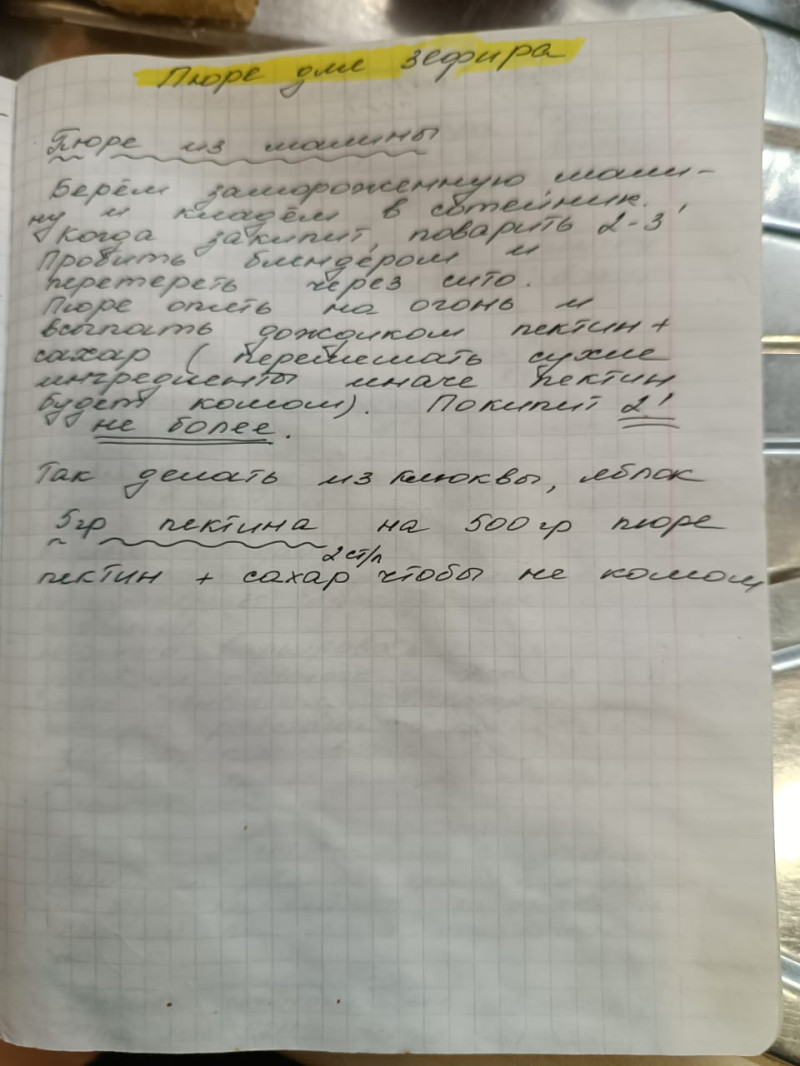 Пюре для зефира
Пюре из малины
Берём замороженную мали-
ну и кладём в сотейник.
Когда закипит, поварить 2-3'
Пробить блендером и
перетереть через сито.
Пюре опять на огонь и
всыпать дождиком пектин +
сахар (перемешать сухие
ингредиенты иначе пектин
будет комом). Покипит 2'
не более.
Так делать из клюквы, яблок
5гр пектина на 500гр пюре
2 ст/л
пектин + сахар чтобы не комом